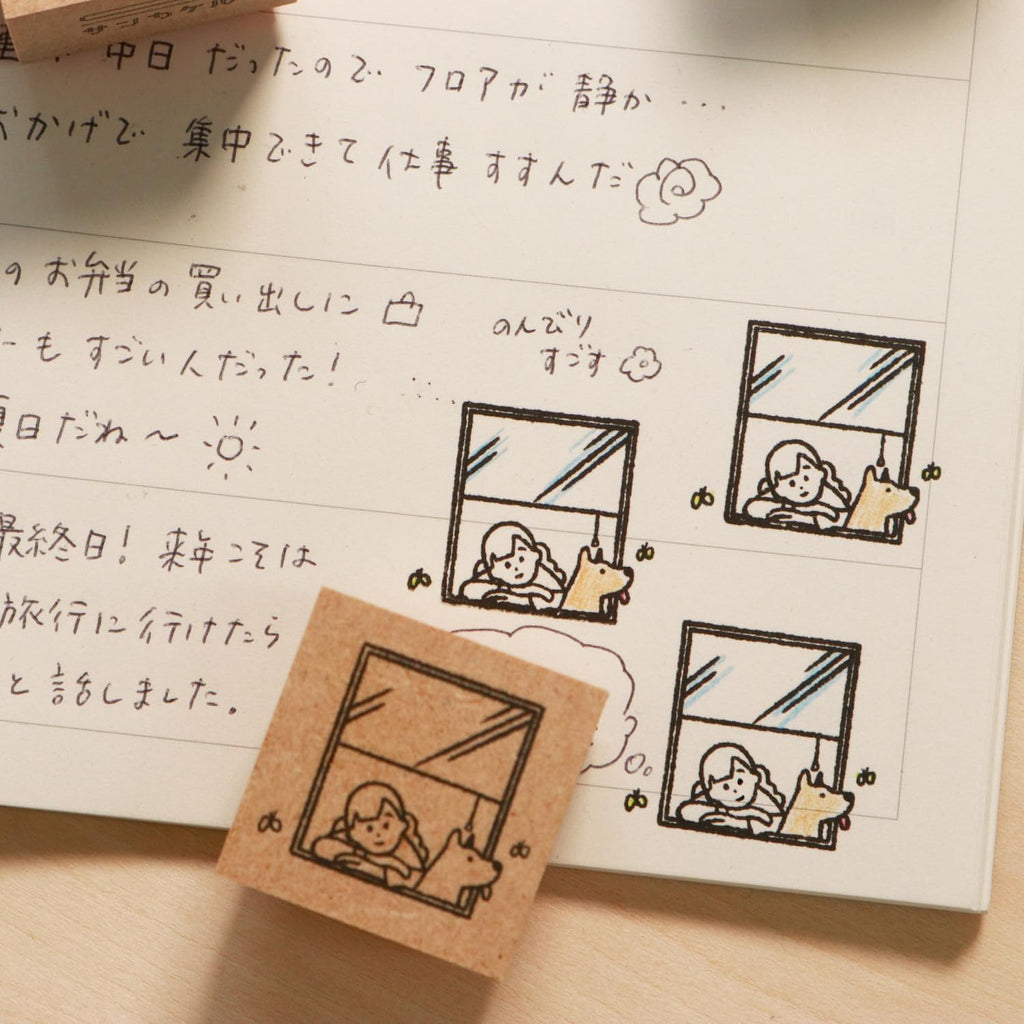 中日 だったので フロアが 静か …
おかげで 集中できて 仕事 すすんだ
の お弁当の買い出しに
のんびり
すごす
も すごい人だった!
夏日だね〜
最終日! 来年こそは
旅行に行けたら
と 話しました。